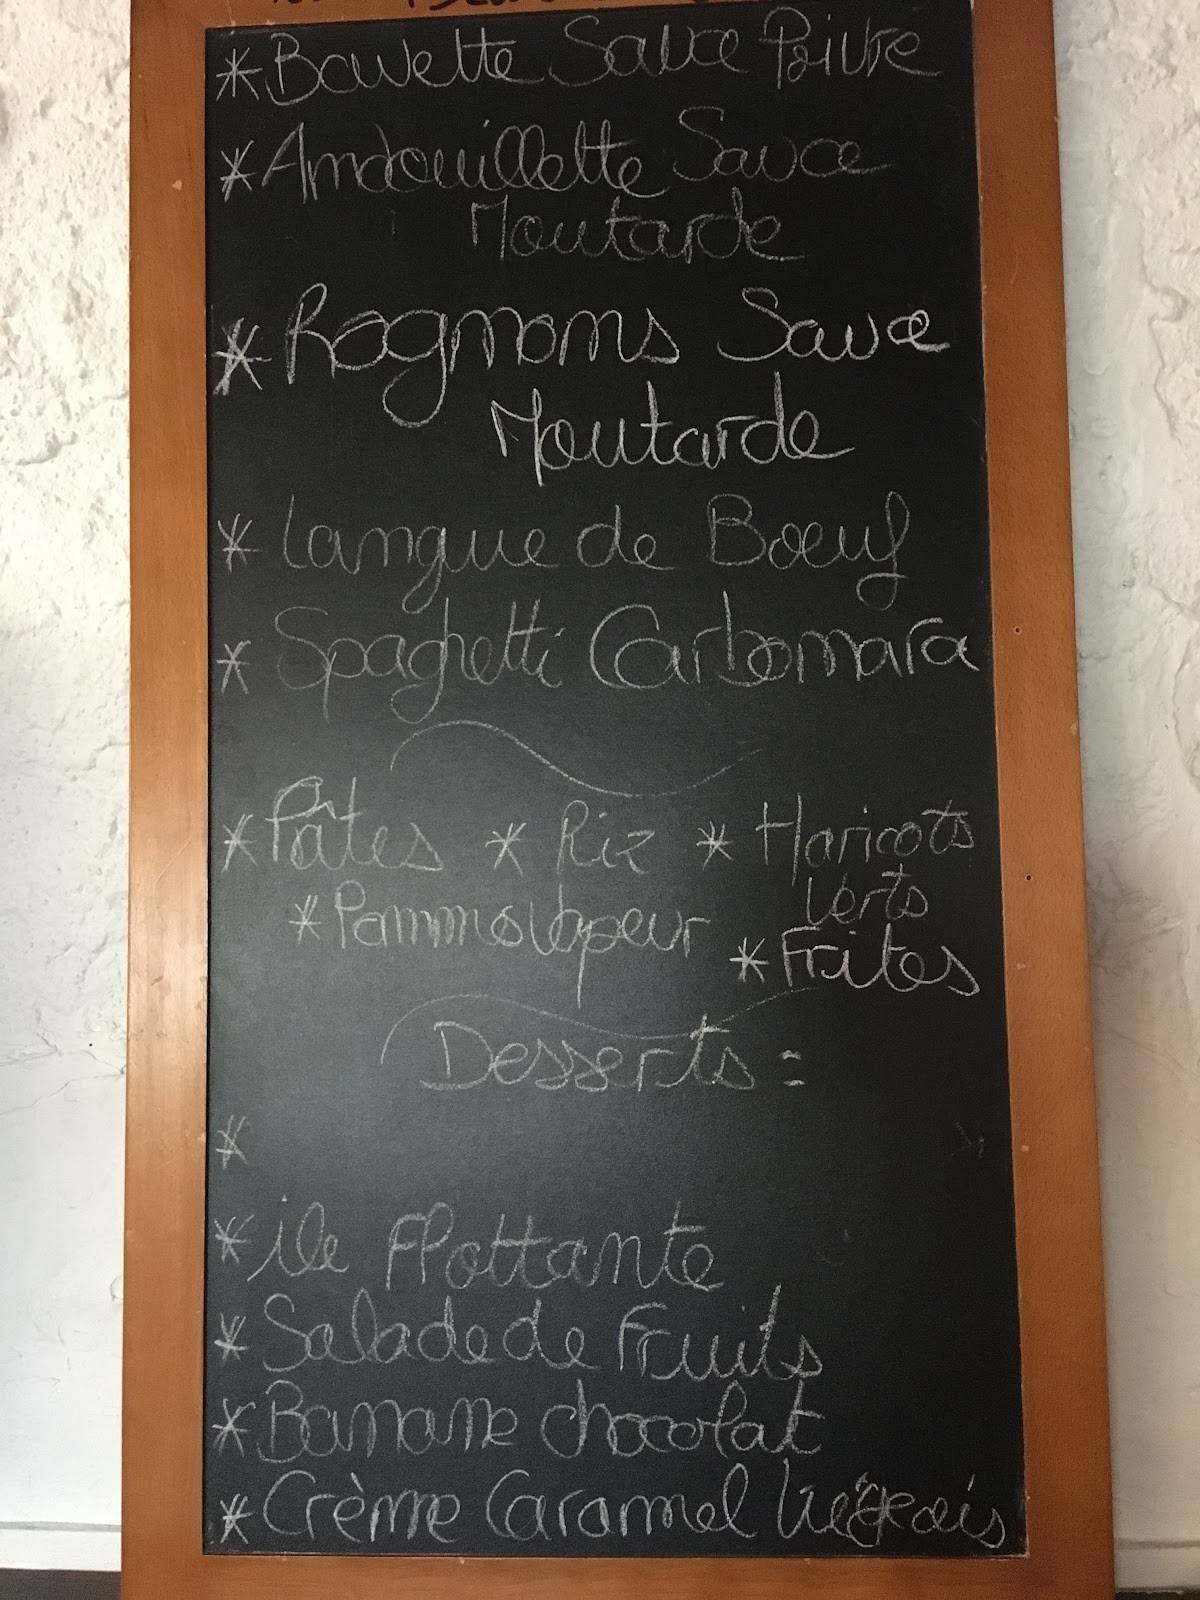 * Bavette Sauce Poivre
* Andouillette Sauce
Moutarde
* Rognons Sauce
Moutarde
* Langue de Boeuf
* Spaghetti Carbonara
* Pâtes * Riz * Haricots
Verts
* Pommes Vapeur
* Frites
Desserts :
*
* île Flottante
* Salade de Fruits
* Banane chocolat
* Crème Caramel Liégeois